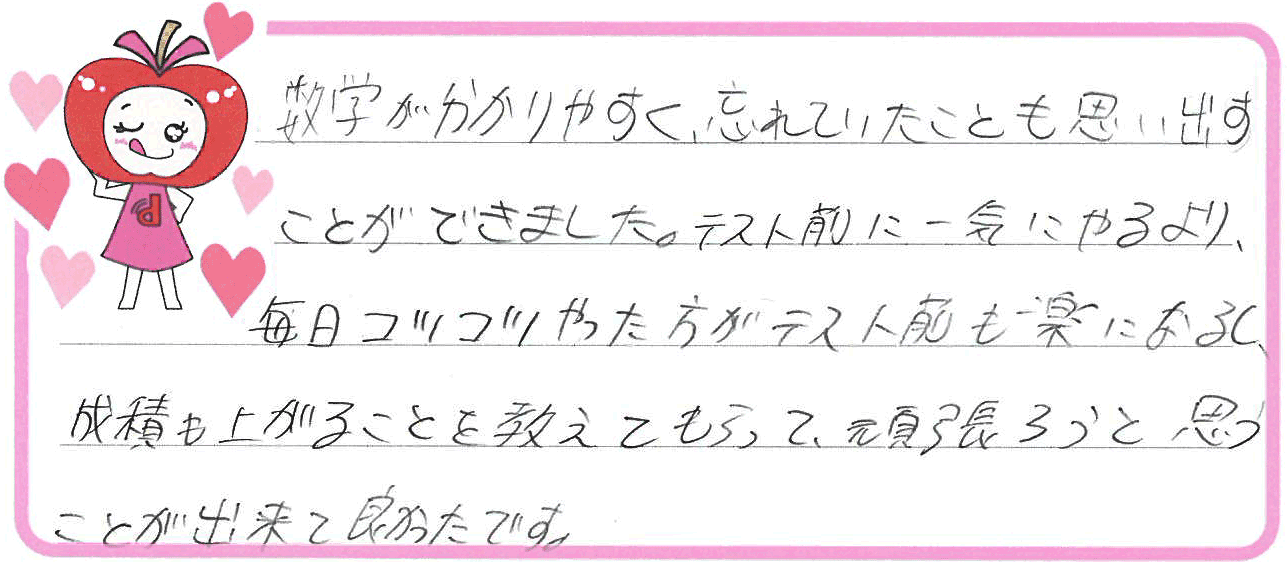 数学が分かりやすく、忘れていたことも思い出す
ことができました。テスト前に一気にやるより、
毎日コツコツやった方がテスト前も楽になるし、
成積も上がることを教えてもらって、頑張ろうと思う
ことが出来て良かったです。